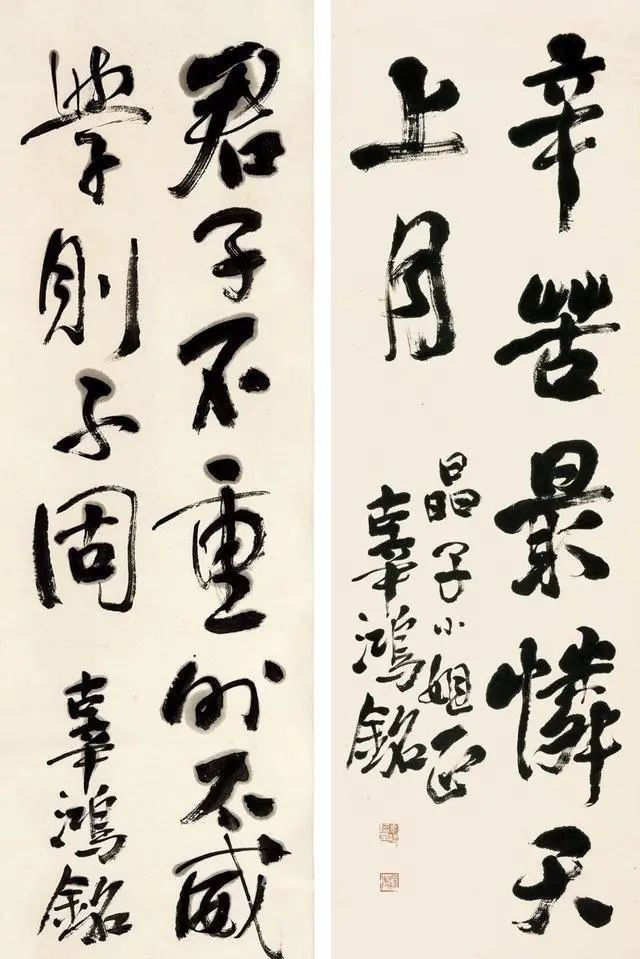 辛苦最憐天
上月
晶子小姐正
辜鴻銘
君子不重則不威
學則不固
辜鴻銘